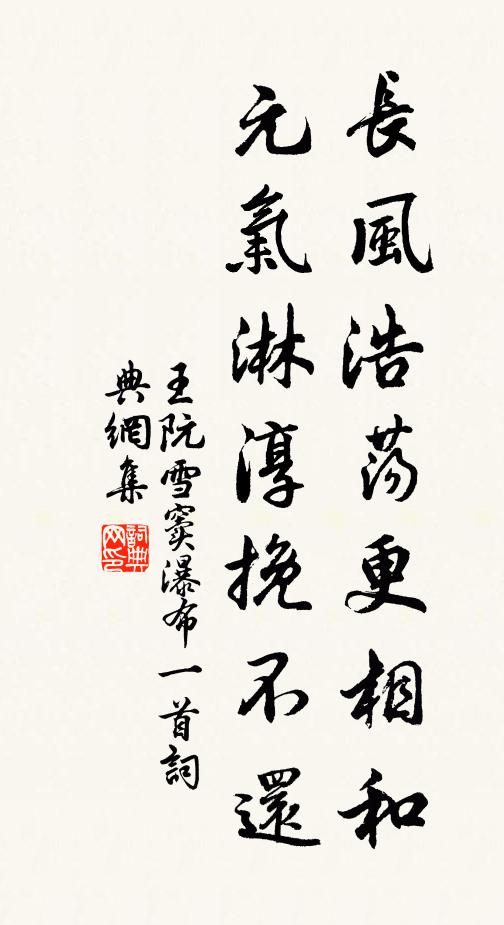 長風浩蕩更相和
元氣淋淳挽不還
王阮雪竇瀑布一首詞
典網集
詞典
网印